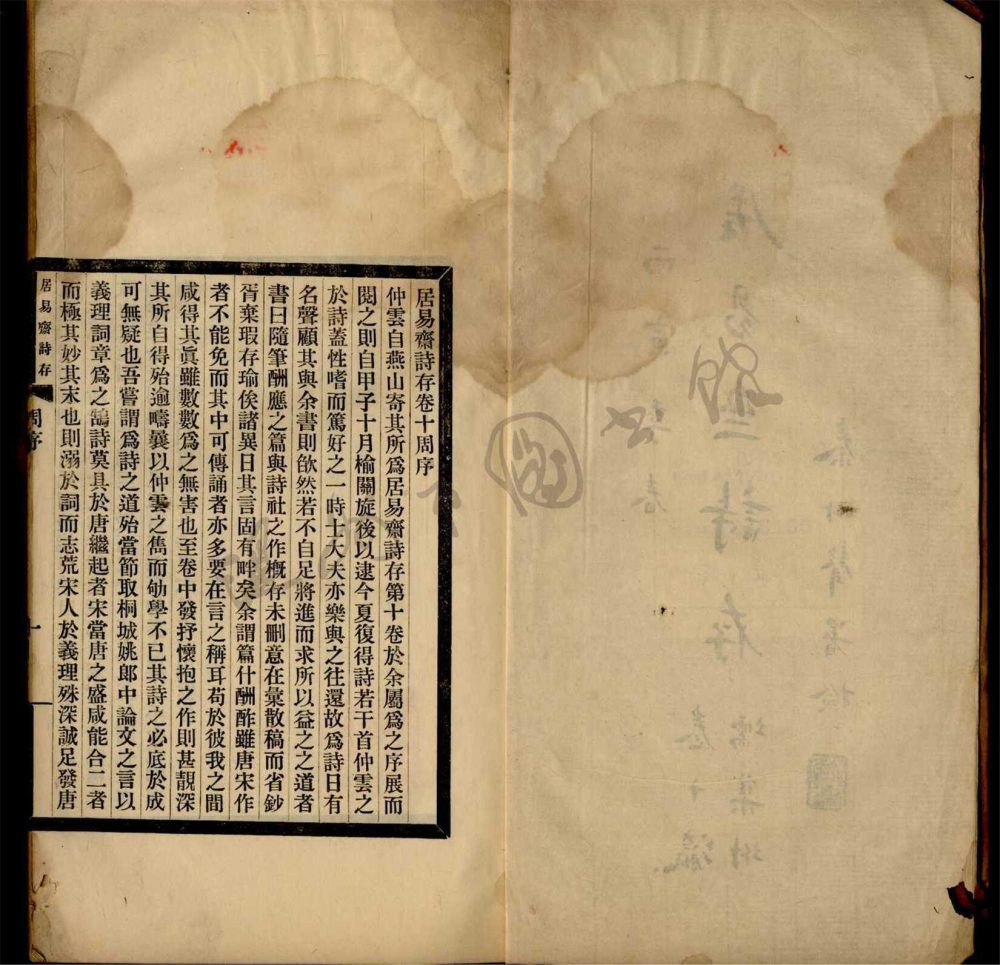 居易齋詩存卷十周序
仲雲自燕山寄其所爲居易齋詩存第十卷於余屬爲之序展而
閱之則自甲子十月榆關旋後以逮今夏復得詩若干首仲雲之
於詩蓋性嗜而篤好之一時士大夫亦樂與之往還故爲詩日有
名聲顧其與余書則欿然若不自足將進而求所以益之之道者
書曰隨筆酬應之篇與詩社之作概存未刪意在彙散稿而省鈔
胥棄瑕存瑜俟諸異日其言固有畔矣余謂篇什酬酢雖唐宋作
者不能免而其中可傳誦者亦多要在言之稱耳苟於彼我之間
咸得其眞雖數數爲之無害也至卷中發抒懷抱之作則甚靚深
其所自得殆逾疇曩以仲雲之雋而劬學不已其詩之必底於成
可無疑也吾嘗謂爲詩之道殆當節取桐城姚郎中論文之言以
義理詞章爲之鵠詩莫具於唐繼起者宋當唐之盛咸能合二者
而極其妙其末也則溺於詞而志荒宋人於義理殊深誠足發唐
居易齋詩存
周序
一